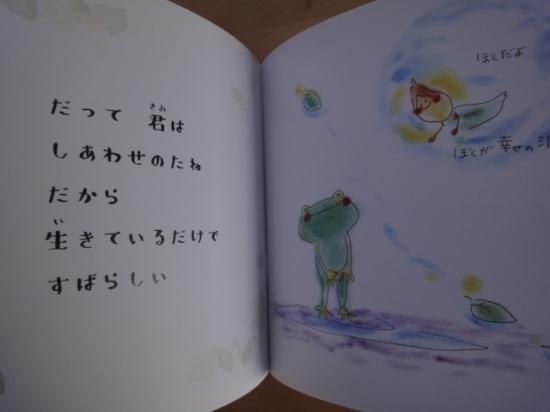 だって 君は
しあわせのたね
だから
生きているだけで
すばらしい
ぼくだよ
ぼくが 幸せの